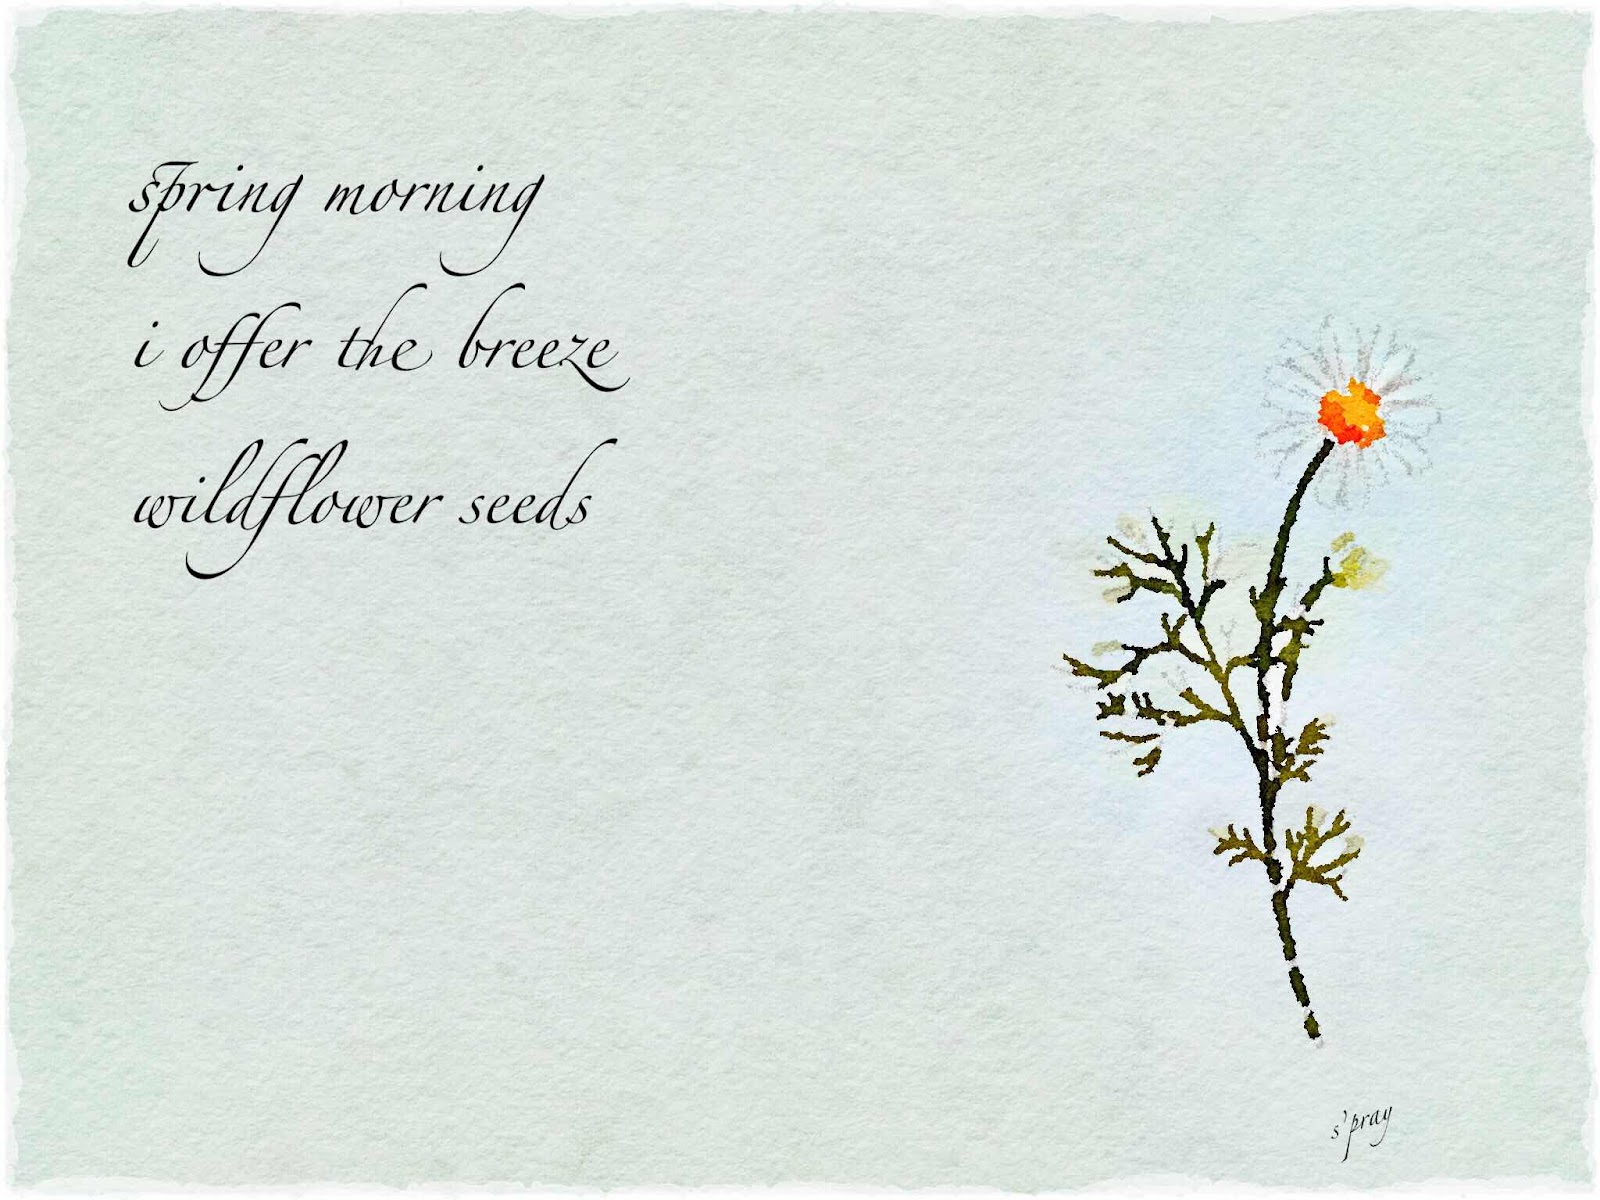 spring morning
i offer the breeze
wildflower seeds
s'pray